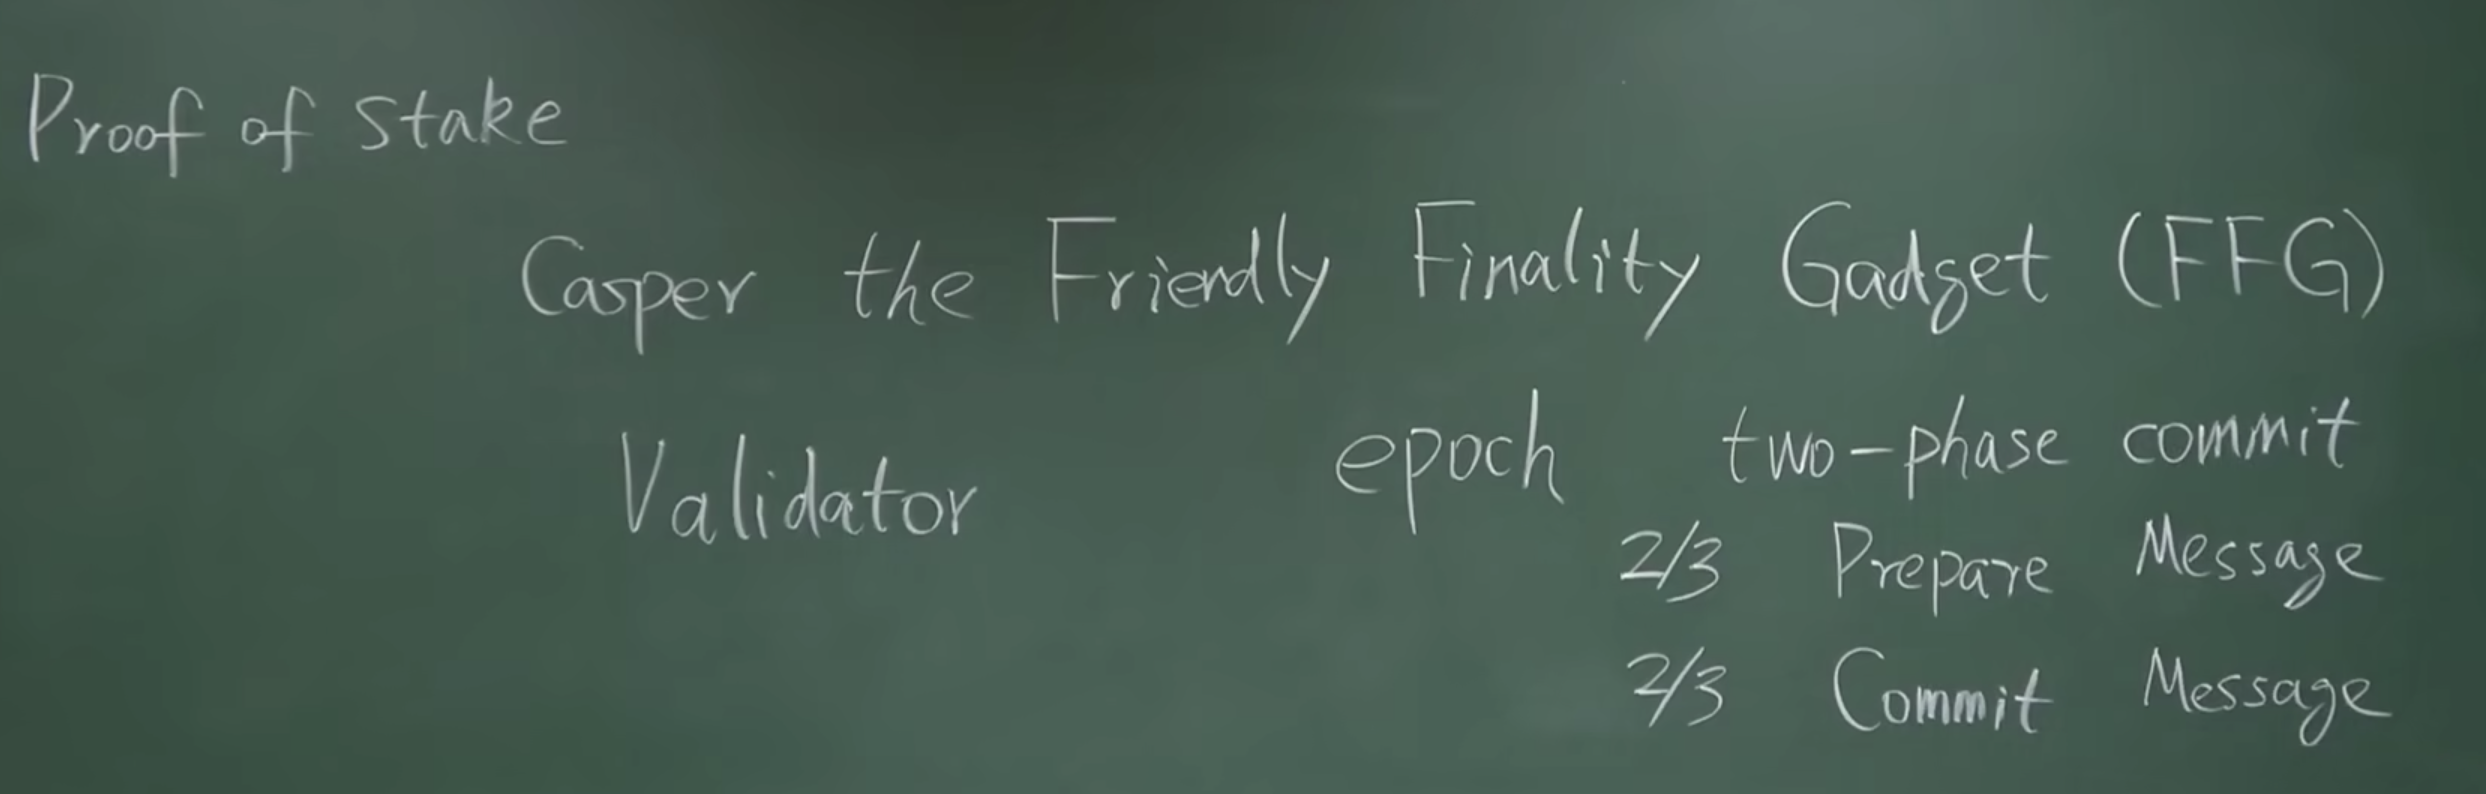 Proof of Stake
Casper the Friendly Finality Gadget (FFG)
Validator epoch two-phase commit
2/3 Prepare Message
2/3 Commit Message